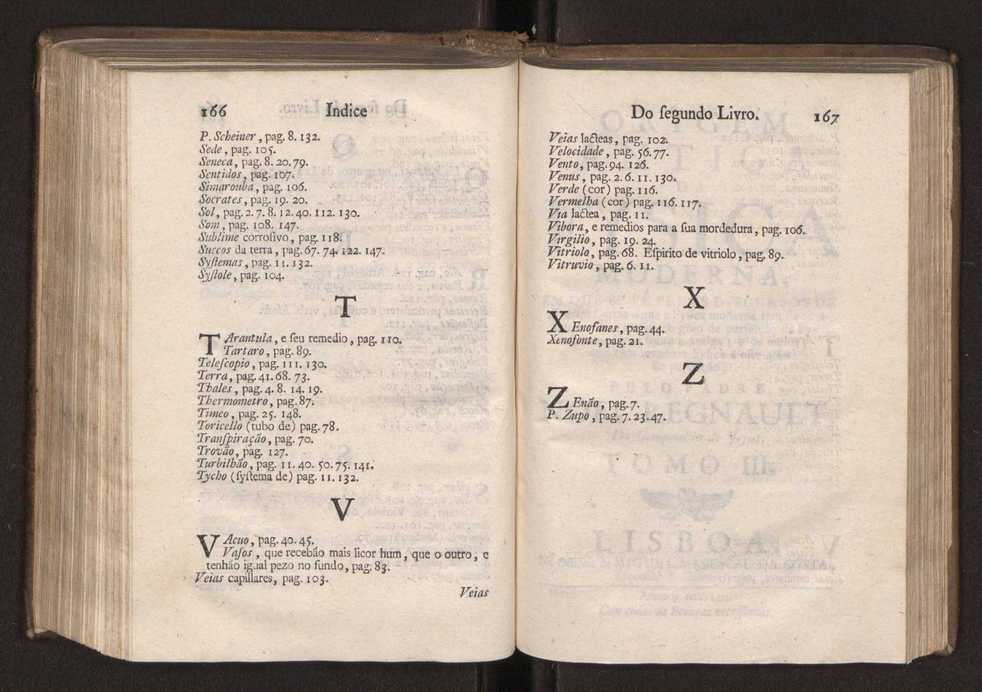 166 Indice
P. Scheiner, pag. 8. 132.
Sede, pag. 105.
Seneca, pag. 8. 20. 79.
Sentidos, pag. 107.
Simarouba, pag. 106.
Socrates, pag. 19. 20.
Sol, pag. 2. 7. 8. 12. 40. 112. 130.
Som, pag. 108. 147.
Sublime corroſivo, pag. 118.
Succos da terra, pag. 67. 74. 122. 147.
Syſtemas, pag. 11. 132.
Syſtole, pag. 104.
T
TArantula, e ſeu remedio, pag. 110.
Tartaro, pag. 89.
Teleſcopio, pag. 111. 130.
Terra, pag. 41. 68. 73.
Thales, pag. 4. 8. 14. 19.
Thermometro, pag. 87.
Timeo, pag. 25. 148.
Toricello (tubo de) pag. 78.
Tranſpiração, pag. 70.
Trovão, pag. 127.
Turbilhão, pag. 11. 40. 50. 75. 141.
Tycho (ſyſtema de) pag. 11. 132.
V
VAcuo, pag. 40. 45.
Vaſos, que recebão mais licor hum, que o outro, e
tenhão igual pezo no fundo, pag. 83.
Veias capillares, pag. 103.
Veias
Do ſegundo Livro. 167
Veias lacteas, pag. 102.
Velocidade, pag. 56. 77.
Vento, pag. 94. 126.
Venus, pag. 2. 6. 11. 130.
Verde (cor) pag. 116.
Vermelha (cor) pag. 116. 117.
Via lactea, pag. 11.
Vibora, e remedios para a ſua mordedura, pag. 106.
Virgilio, pag. 19. 24.
Vitriolo, pag. 68. Eſpirito de vitriolo, pag. 89.
Vitruvio, pag. 6. 11.
X
XEnofanes, pag. 44.
Xenofonte, pag. 21.
Z
ZEnão, pag. 7.
P. Zupo, pag. 7. 23. 47.